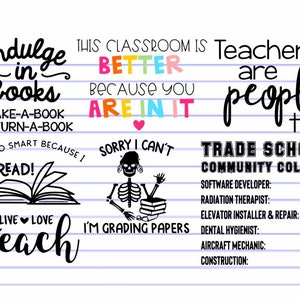 Indulge
in
books
TAKE-A-BOOK
RETURN-A-BOOK
THIS CLASSROOM IS
BETTER
BECAUSE YOU
ARE IN IT
Teacher
are
people
SO SMART BECAUSE I
READ!
LIVE LOVE
teach
SORRY I CAN'T
I'M GRADING PAPERS
TRADE SCHO
COMMUNITY COL
SOFTWARE DEVELOPER:
RADIATION THERAPIST:
ELEVATOR INSTALLER & REPAIR:
DENTAL HYGIENIST:
AIRCRAFT MECHANIC:
CONSTRUCTION: